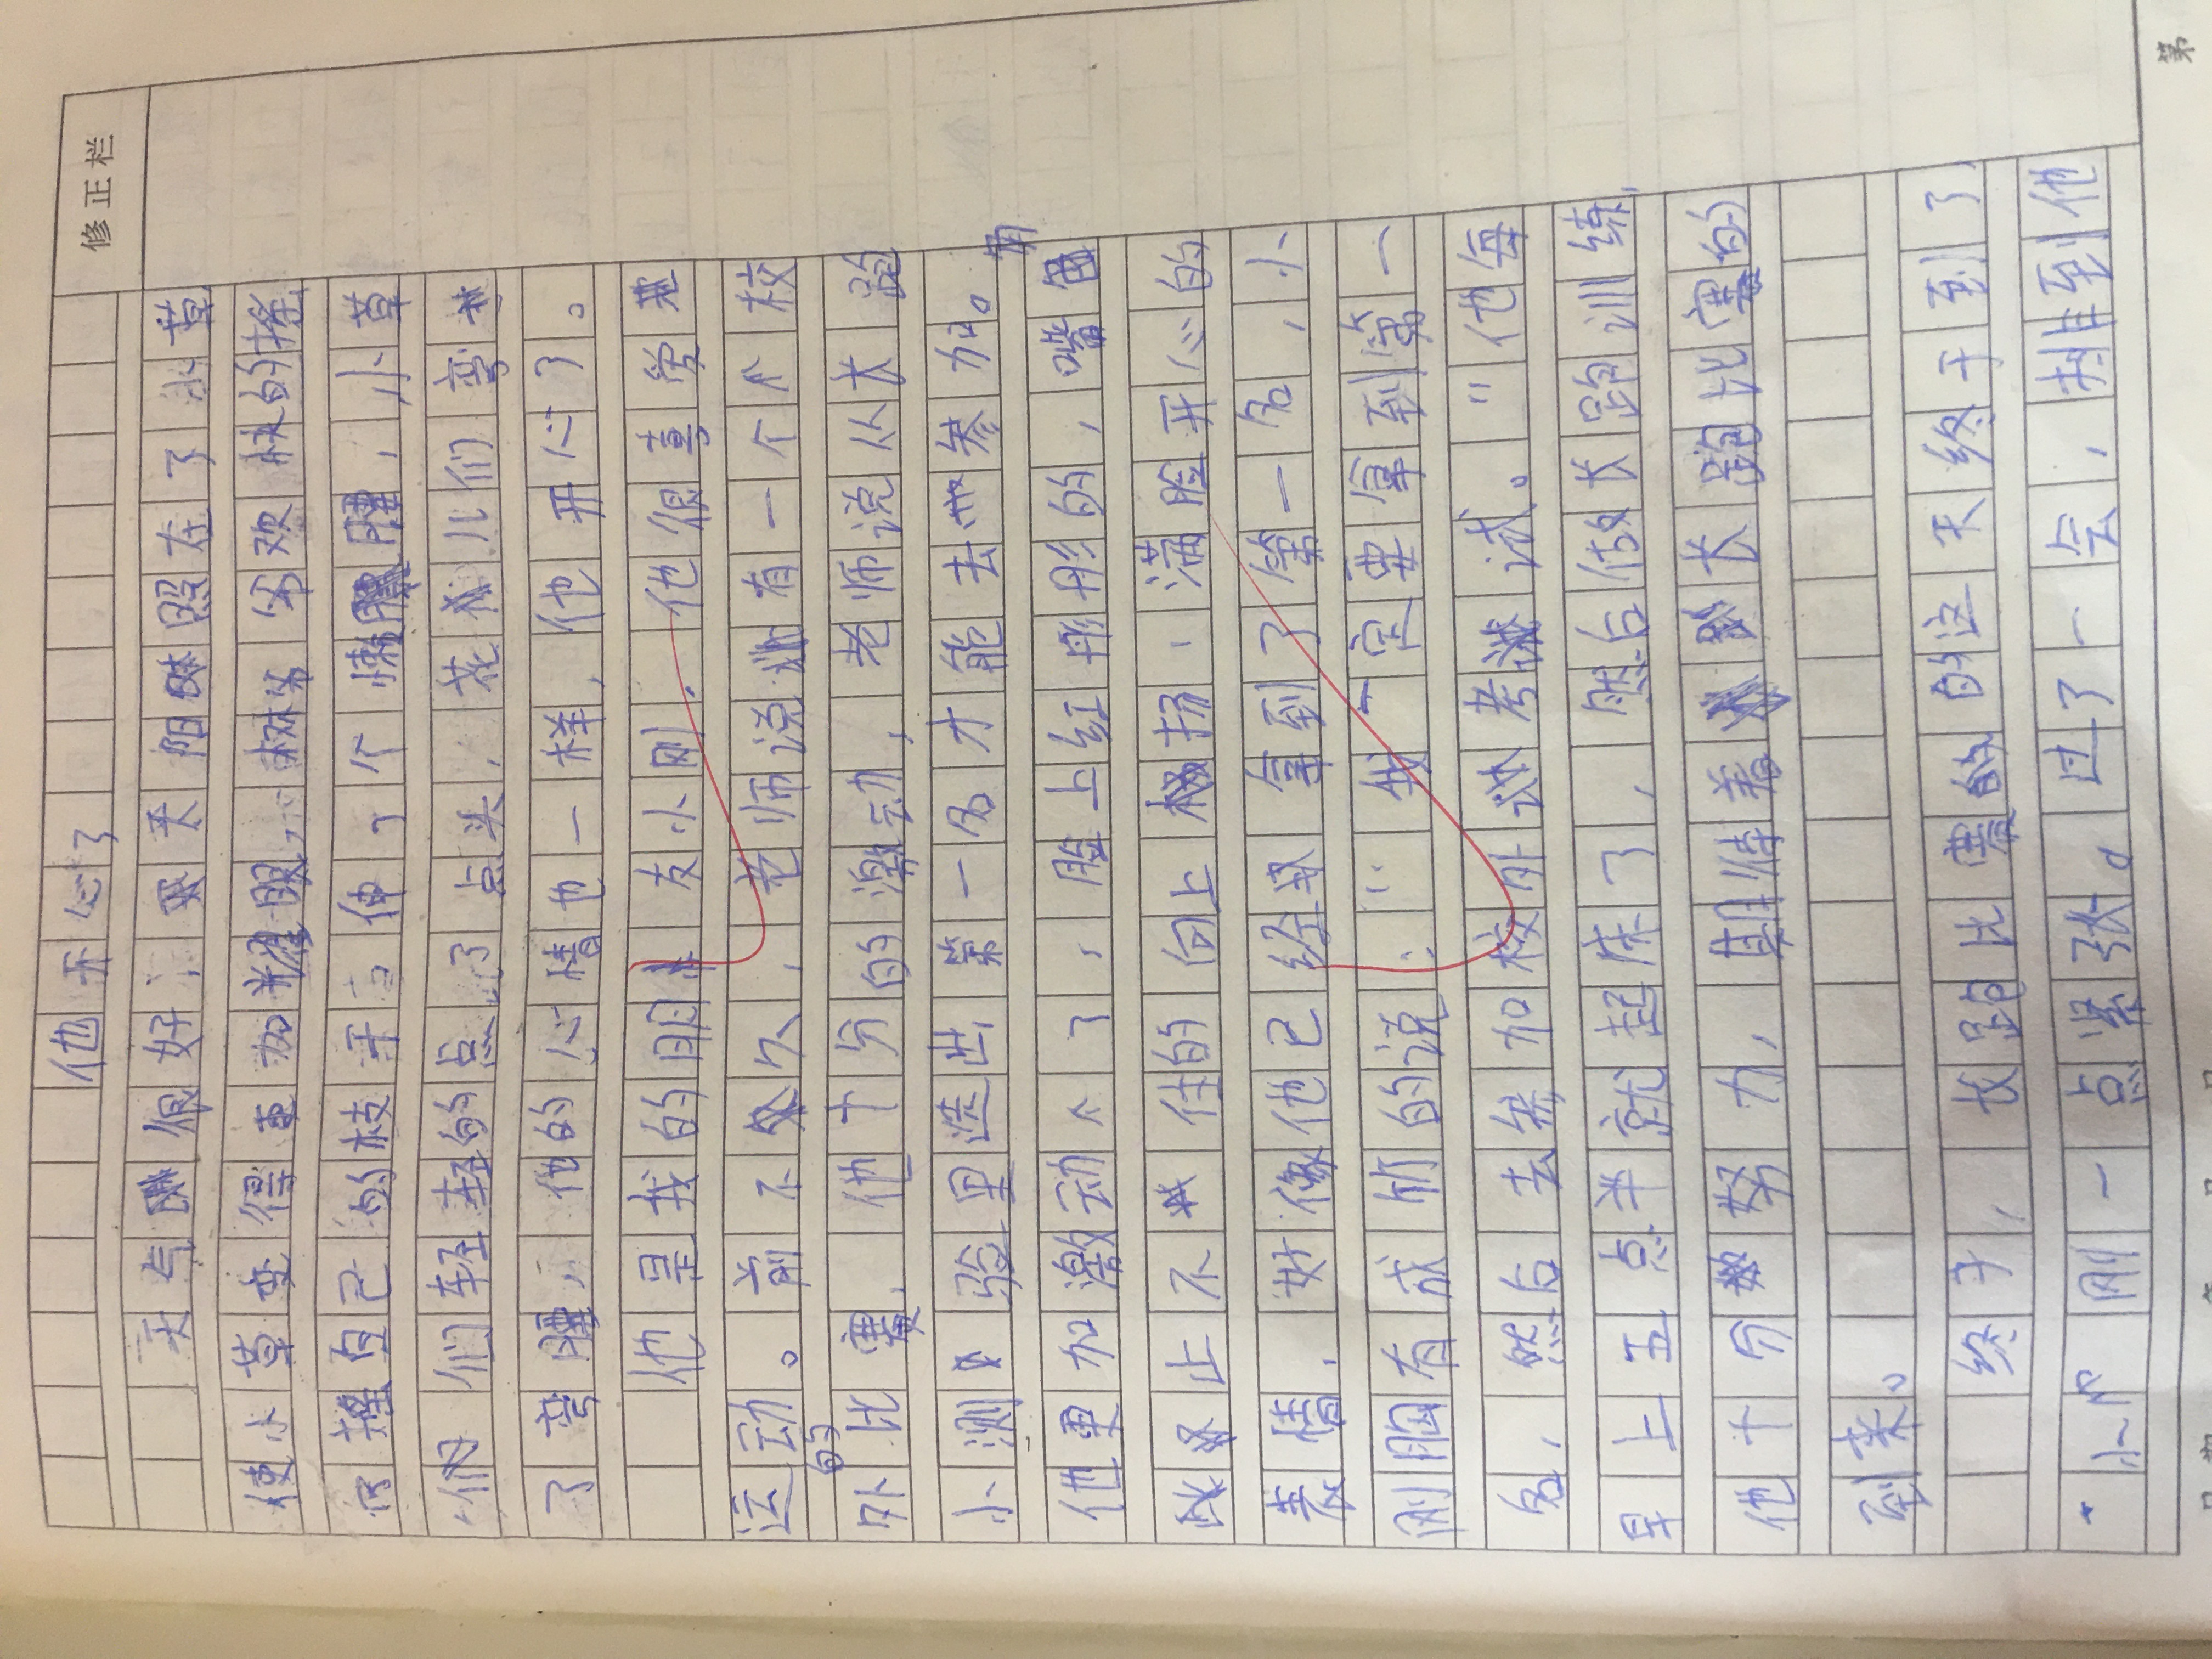 修正栏
他开心了
天气很好，天阳照在了小草
使小草变得更加耀眼，树欢快的摇
了摇自己的枝干，伸了个懒腰，小草
们轻轻的点了点头，花儿们弯
了弯腰，他的心情也一样，他开心了。
他是我的朋友小刚，他很喜欢
运动。前不久，老师说有一个校
外的比赛，他十分的激动，老师说从长跑
小测验里选出第一名才能去参加。
他更加激动了，脸上红彤彤的，嘴角
止不住的向上扬，满脸开心的
表情，好像他已经拿到了第一名，小
刚胸有成竹的说：“我一定要拿到第一
名，然后去参加校外考试。”他每
早上五点半就起床了，然后做长跑训练，
他十分努力，期待着长跑比赛的
到来。
终于，长跑比赛的这天终于到了，
小刚一点紧张。过了一会，排到他
第